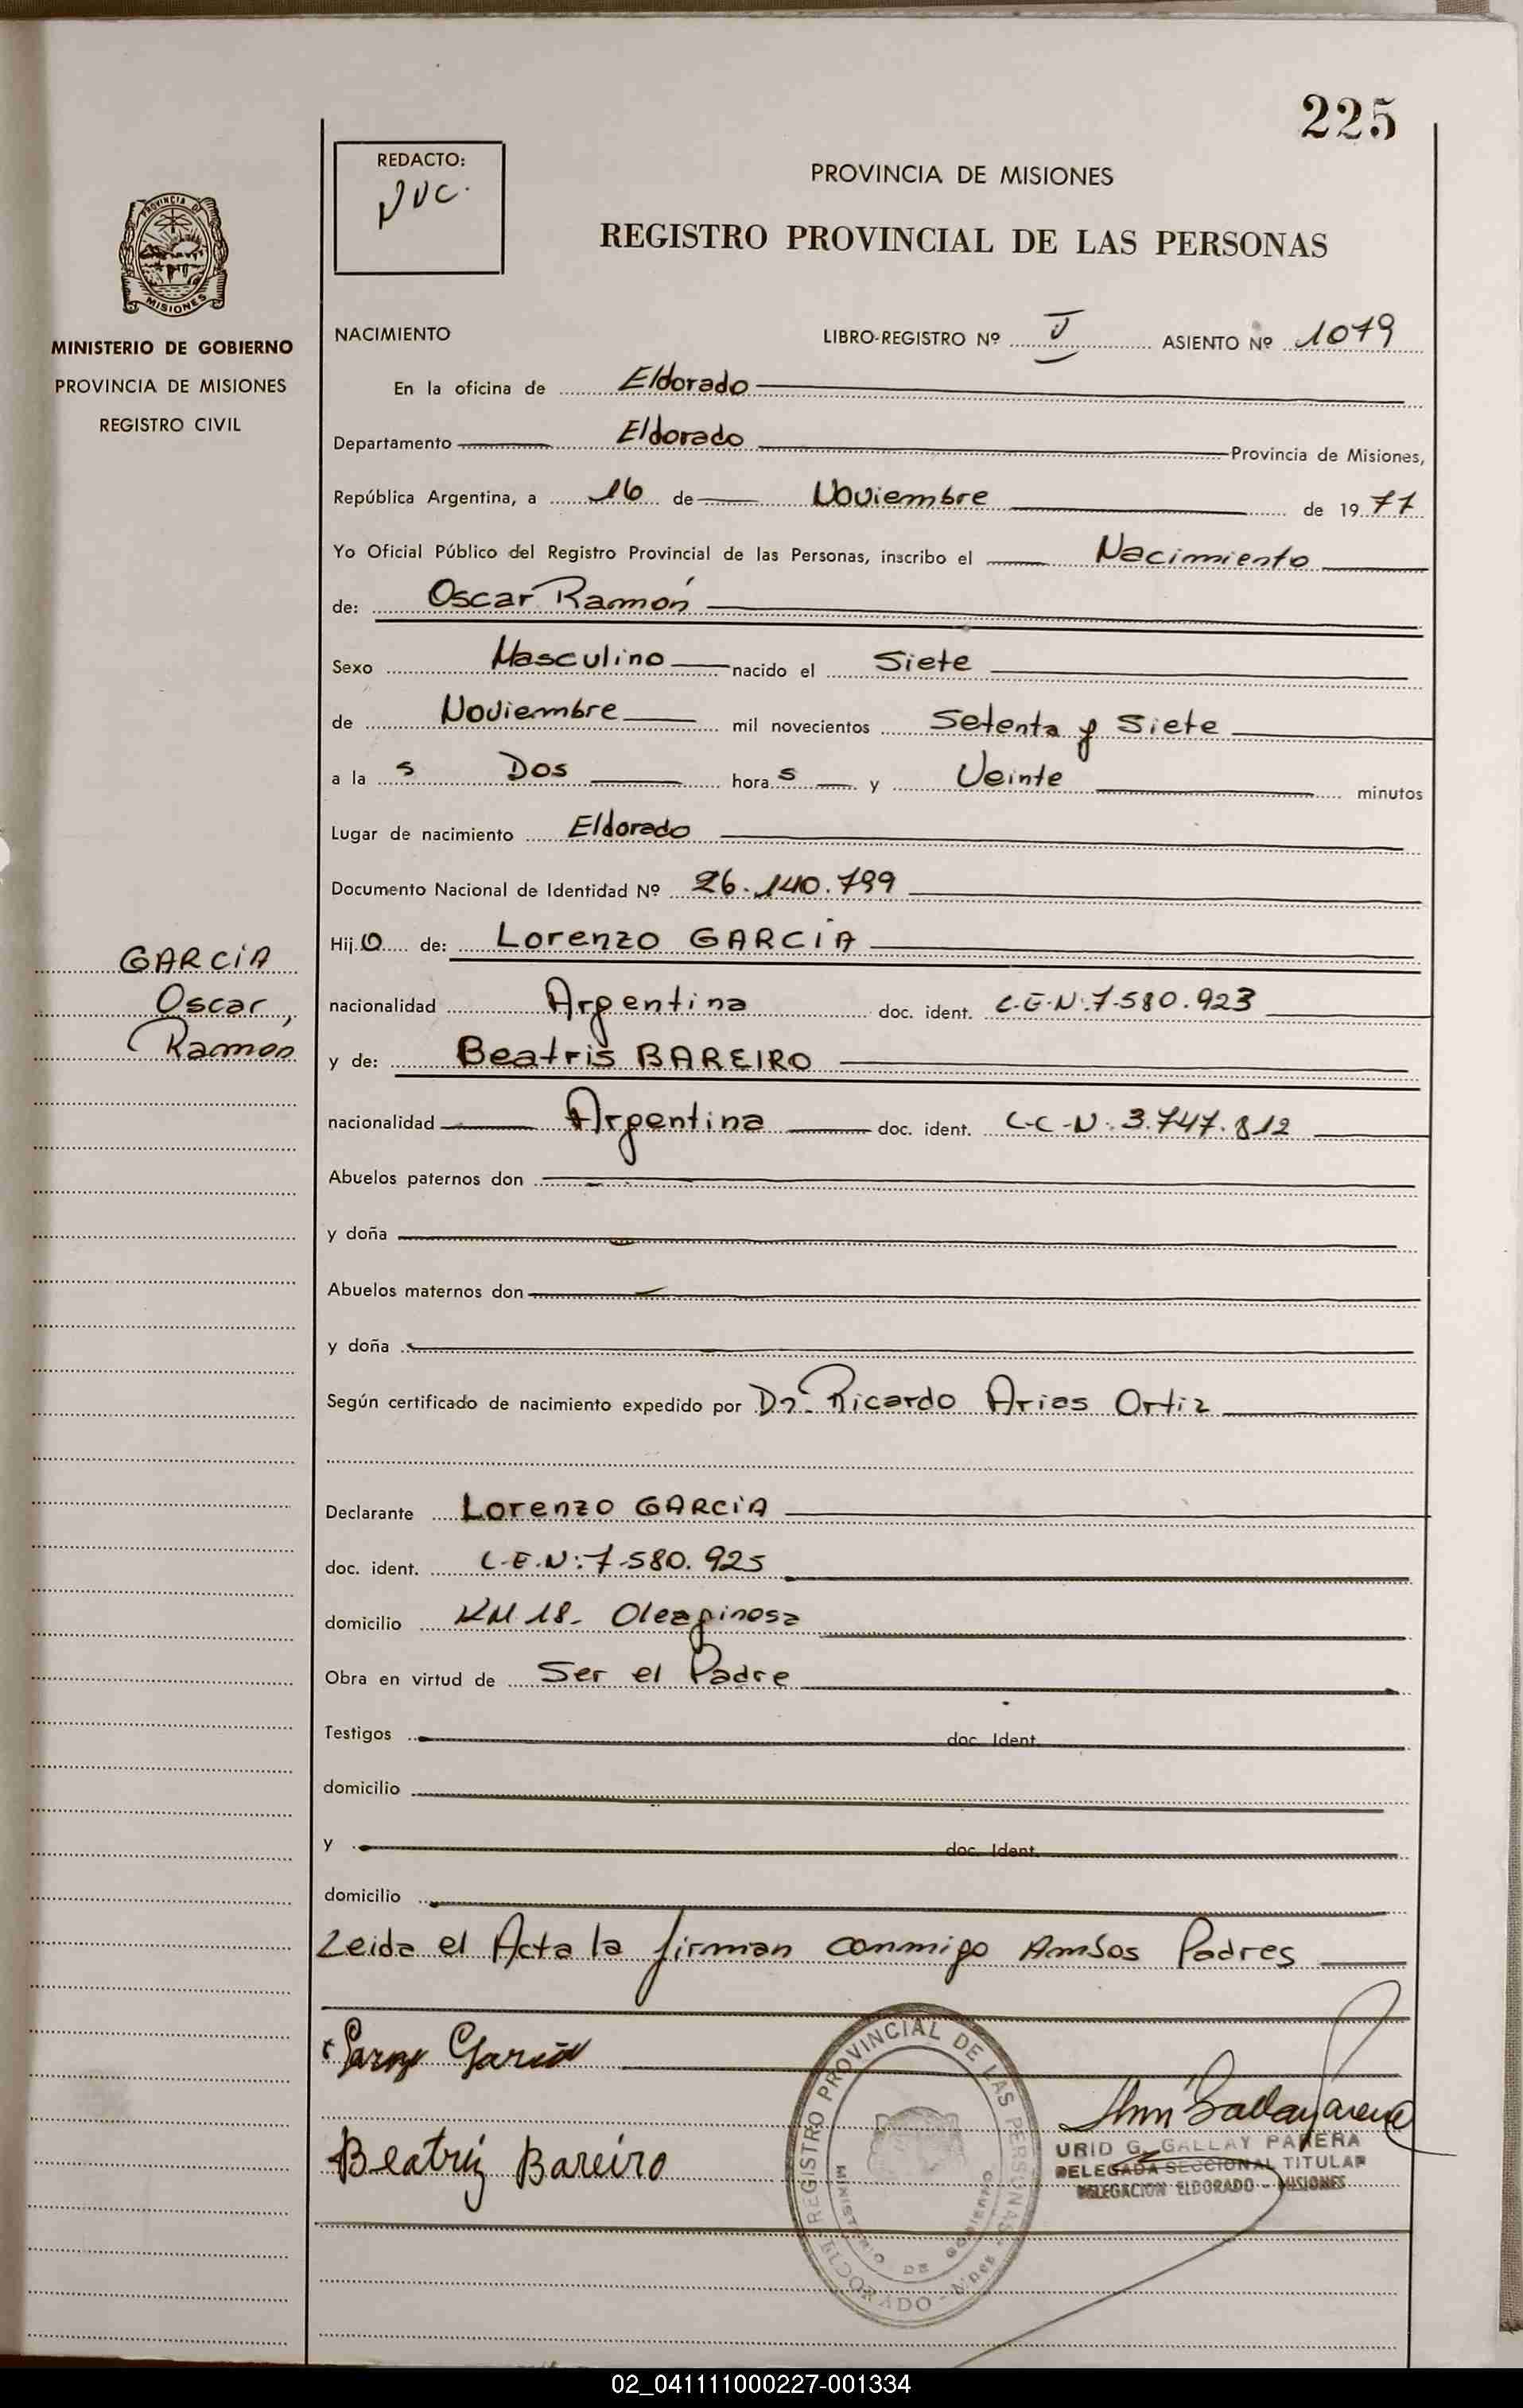 225
REDACTO:
NVC.
PROVINCIA DE MISIONES
REGISTRO PROVINCIAL DE LAS PERSONAS
PROVINCIA DE
MISIONES
MINISTERIO DE GOBIERNO
PROVINCIA DE MISIONES
REGISTRO CIVIL
NACIMIENTO LIBRO-REGISTRO Nº ASIENTO Nº 1079
En la oficina de Eldorado
Departamento Eldorado Provincia de Misiones,
República Argentina, a 16 de Noviembre de 1977
Yo Oficial Público del Registro Provincial de las Personas, inscribo el Nacimiento
de: Oscar Ramón
Sexo Masculino nacido el Siete
de Noviembre mil novecientos Setenta y Siete
a la s Dos hora s y Veinte minutos
Lugar de nacimiento Eldorado
Documento Nacional de Identidad Nº 26.140.799
Hij o de: Lorenzo GARCIA
GARCIA
Oscar,
Ramón
nacionalidad Argentina doc. ident. L.E.N:7.580.923
y de: Beatris BAREIRO
nacionalidad Argentina doc. ident. L-C-N: 3.747.812
Abuelos paternos don
y doña
Abuelos maternos don
y doña
Según certificado de nacimiento expedido por Dr. Ricardo Arias Ortiz
Declarante Lorenzo GARCIA
doc. ident. L.E.N:7.580.925
domicilio KM 18- Oleaginosa
Obra en virtud de Ser el Padre
Testigos doc. Ident.
domicilio
y doc. Ident.
domicilio
Leida el Acta la firman conmigo Ambos Padres
Garcia
Beatriz Bareiro
REGISTRO PROVINCIAL DE LAS PERSONAS
MINISTERIO DE GOBIERNO
ELDORADO - Mnes.
URID G. GALLAY PARERA
DELEGADA SECCIONAL TITULAR
DELEGACION ELDORADO - MISIONES
02_041111000227-001334